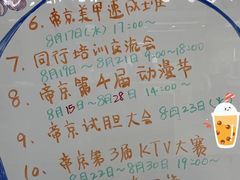 6. 帝京美甲速成班
8月17日 17:00~
7. 同行培训交流会
8月19日~8月21日 9:00~18:00
8. 帝京第4届动漫节
8月15日~8月28日 14:00~
9. 帝京试胆大会 8月23日
10. 帝京第3届KTV大赛
8月22日~8月30日 19:00~